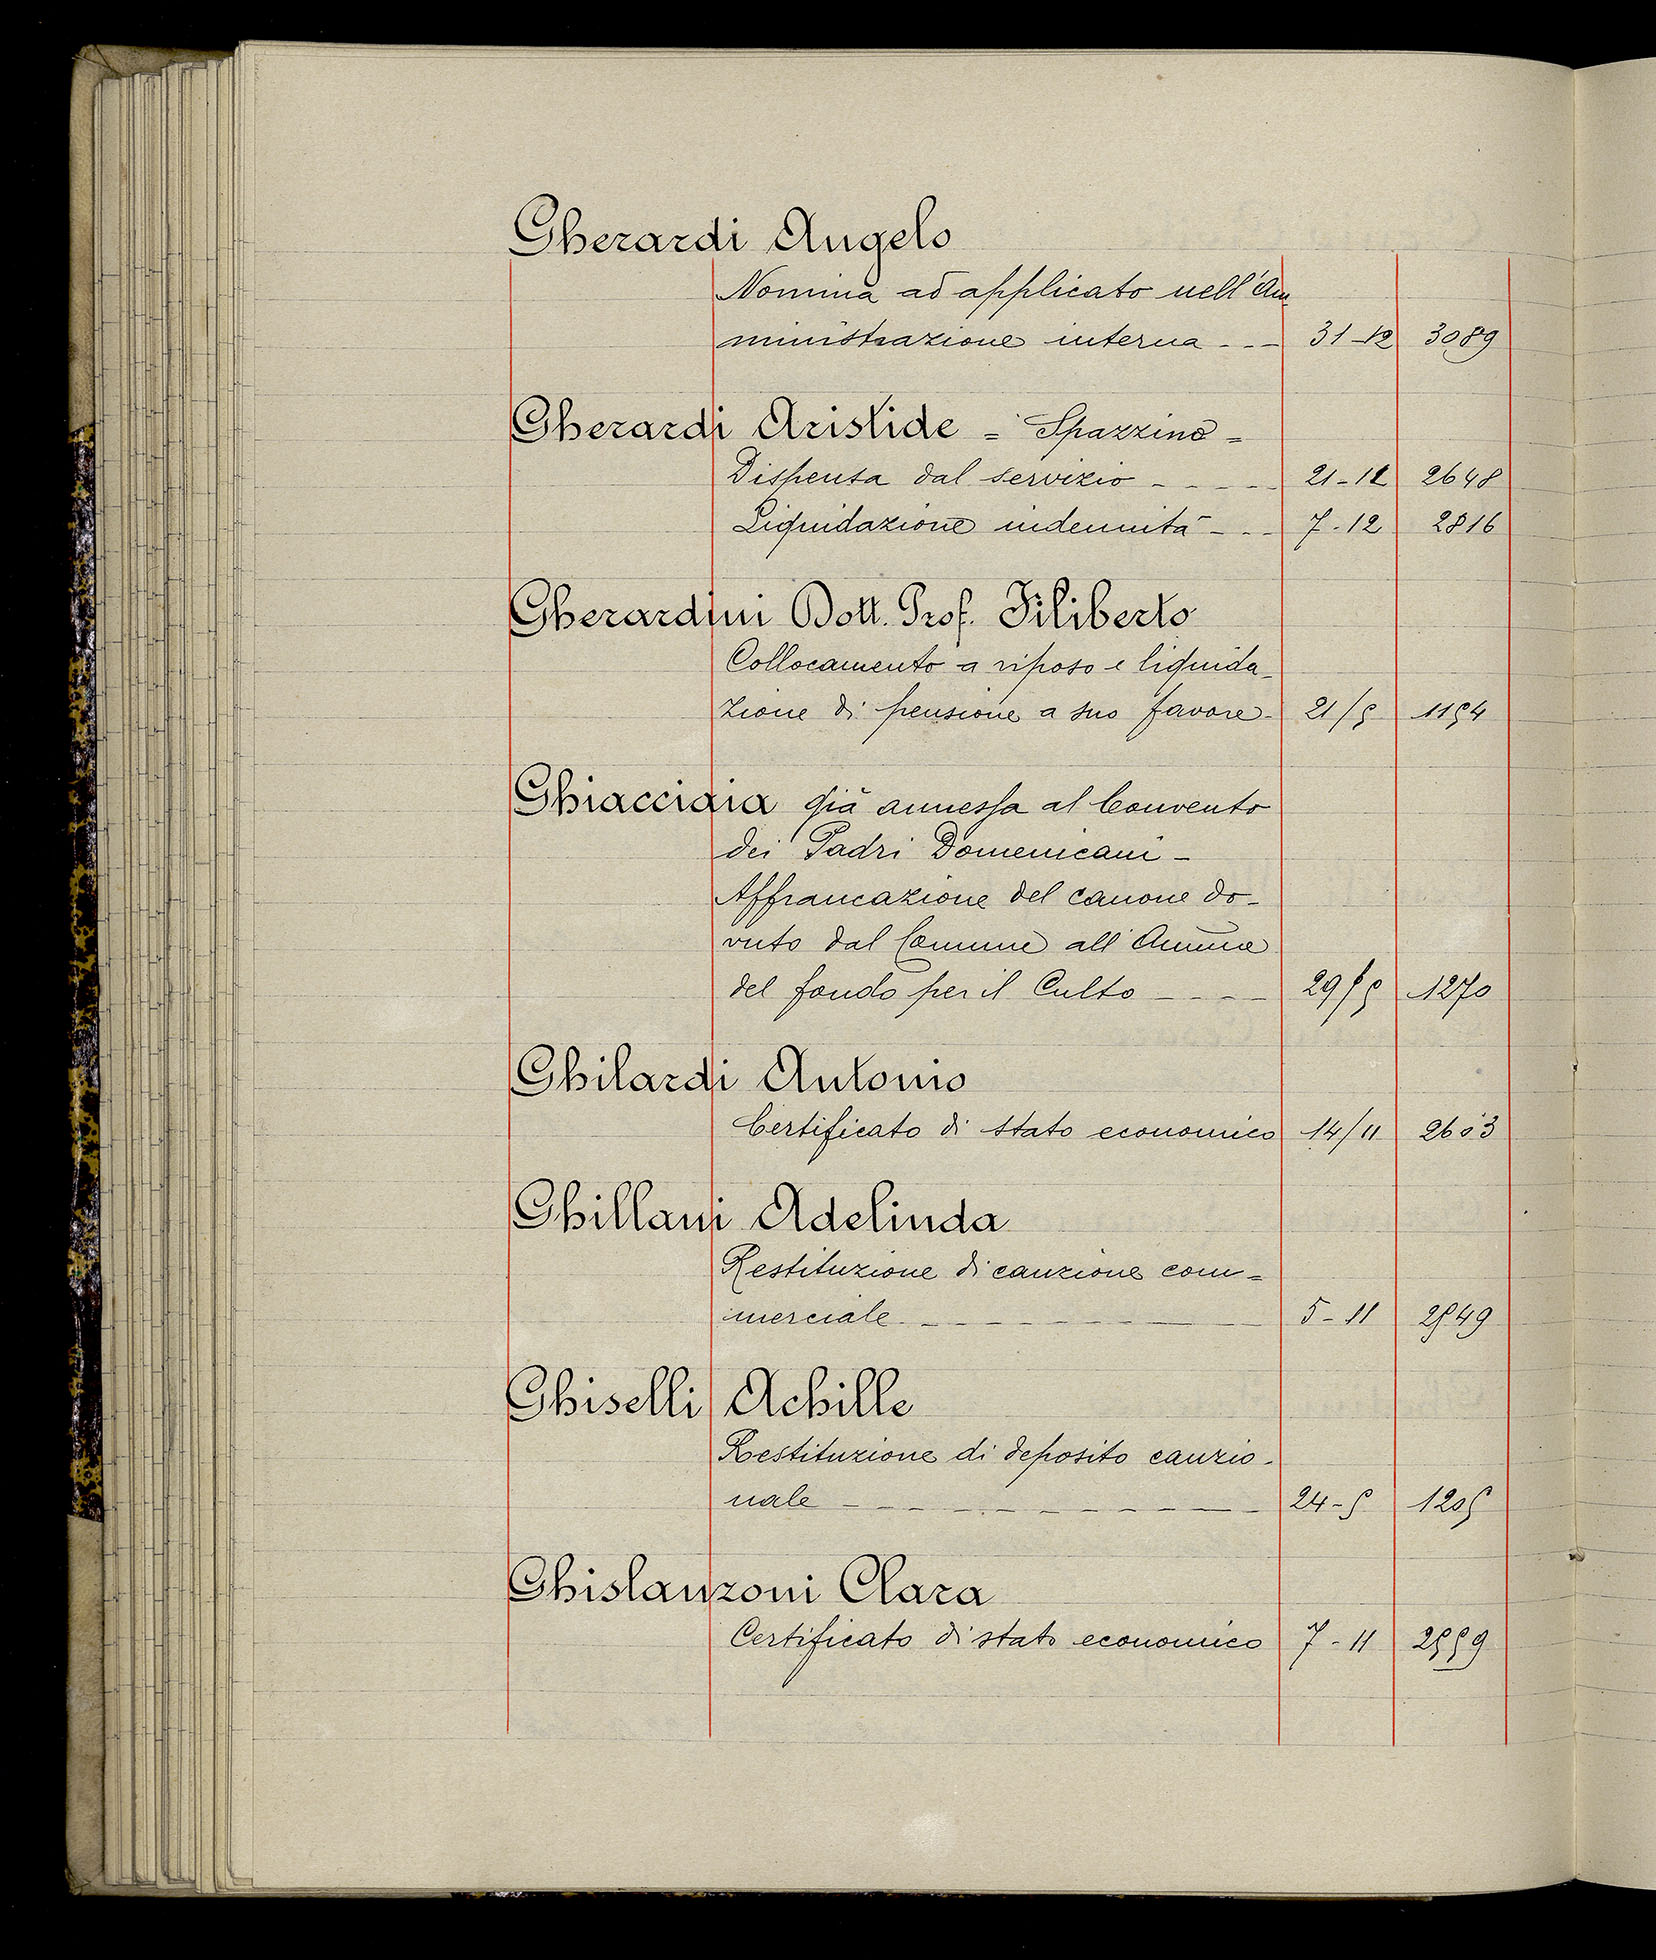 Gherardi Angelo
Nomina ad applicato nell'Am
ministrazione interna - - - 31-12 3089
Gherardi Aristide = Spazzino =
Dispensa dal servizio - - - - - 21-11 2648
Liquidazione indennità - - - 7-12 2816
Gherardini Dott. Prof. Filiberto
Collocamento a riposo e liquida-
zione di pensione a suo favore - 21/5 1154
Ghiacciaia già annessa al Convento
dei Padri Domenicani -
Affrancazione del canone do-
vuto dal Comune all'Amm.ne
del fondo per il Culto - - - - 29/5 1270
Ghilardi Antonio
Certificato di stato economico 14/11 2603
Ghillani Adelinda
Restituzione di cauzione com=
merciale - - - - - - - 5-11 2549
Ghiselli Achille
Restituzione di deposito cauzio-
nale - - - - - - - - - 24-5 1205
Ghislanzoni Clara
Certificato di stato economico 7-11 2559